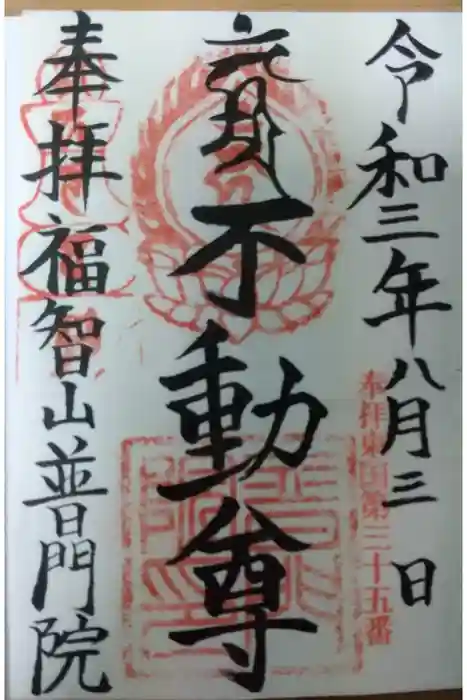 令和三年八月三日
奉拝東国第三十五番
不動尊
奉拝
福智山普門院